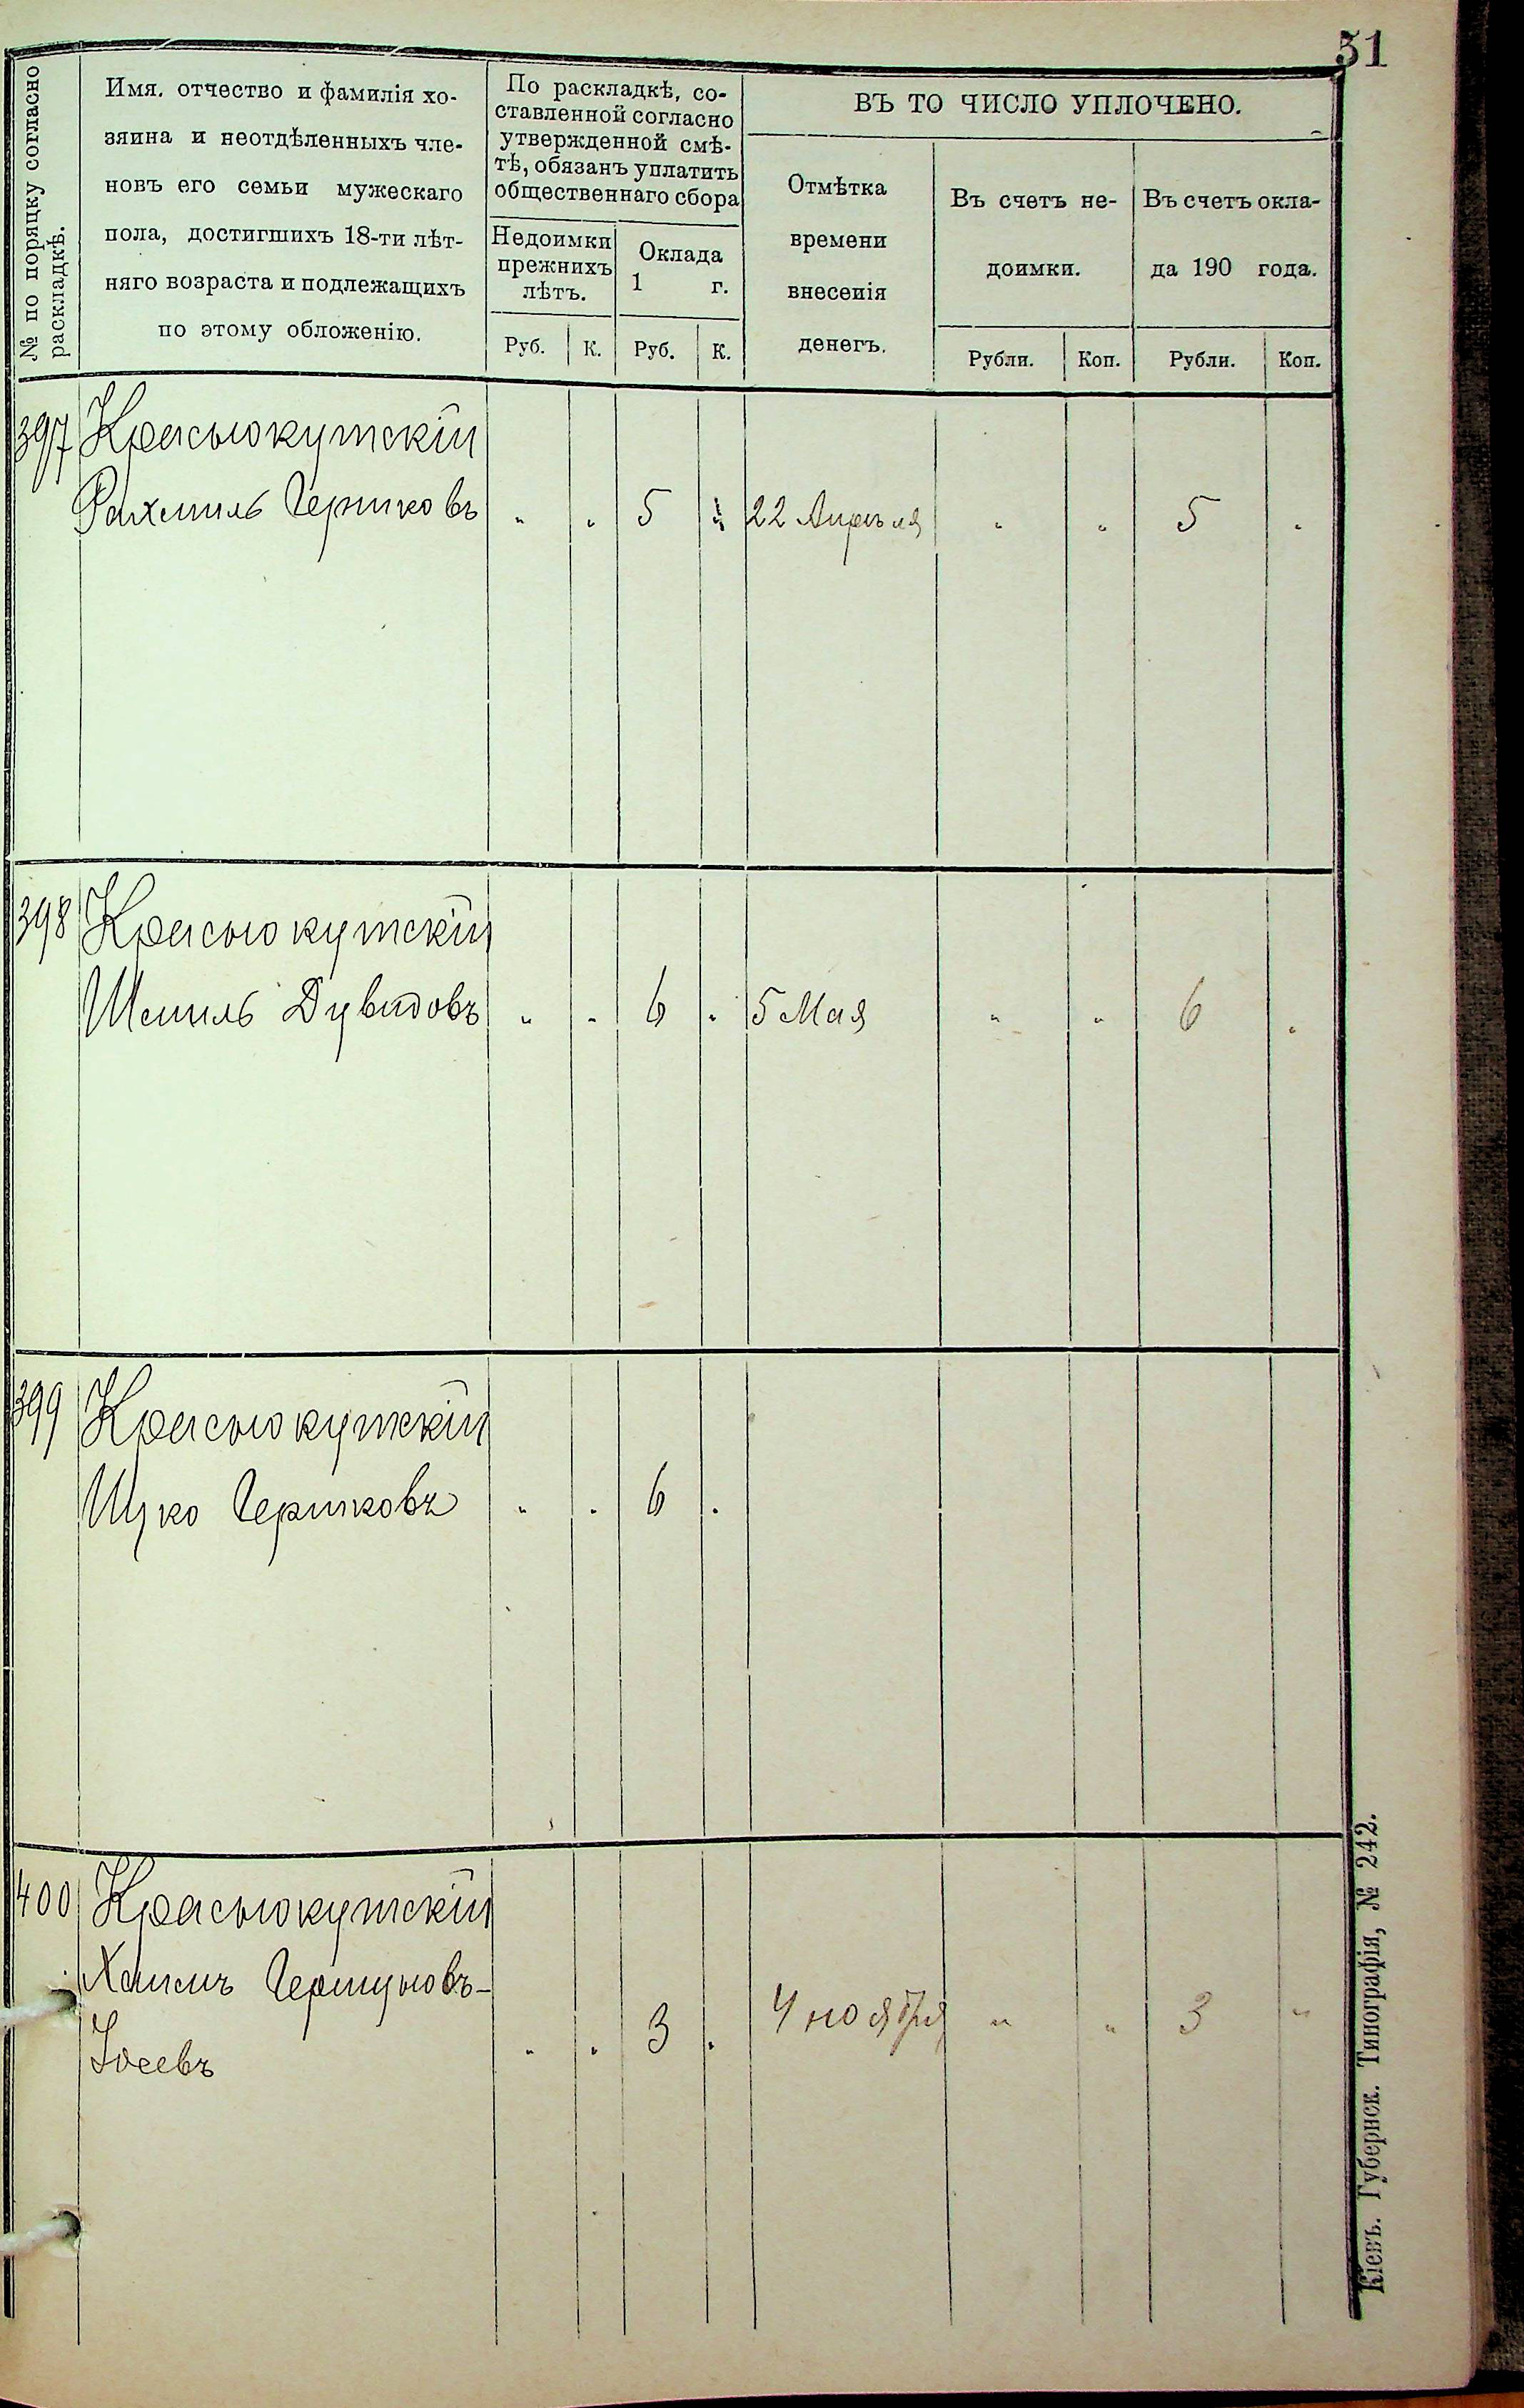 51
№ по порядку согласно
раскладкѣ.
Имя, отчество и фамилія хо-
зяина и неотдѣленныхъ чле-
новъ его семьи мужескаго
пола, достигшихъ 18-ти лѣт-
няго возраста и подлежащихъ
по этому обложенію.
По раскладкѣ, со-
ставленной согласно
утвержденной смѣ-
тѣ, обязанъ уплатить
общественнаго сбора
Недоимки
прежнихъ
лѣтъ.
Оклада
1 г.
Руб. К. Руб. К.
ВЪ ТО ЧИСЛО УПЛОЧЕНО.
Отмѣтка
времени
внесенія
денегъ.
Въ счетъ не-
доимки.
Въ счетъ окла-
да 190 года.
Рубли. Коп. Рубли. Коп.
397 Краснокутскій
Рахмиль Гершковъ " " 5 " 22 Апрѣля " " 5 "
398 Краснокутскій
Шмиль Дувидовъ " " 6 " 5 Мая " " 6 "
399 Краснокутскій
Ицко Гершковъ " " 6 "
400 Краснокутскій
Хаимъ Гершуновъ-
Іосевъ " " 3 " 4 ноября " " 3 "
Кіевъ. Губернск. Типографія, № 242.